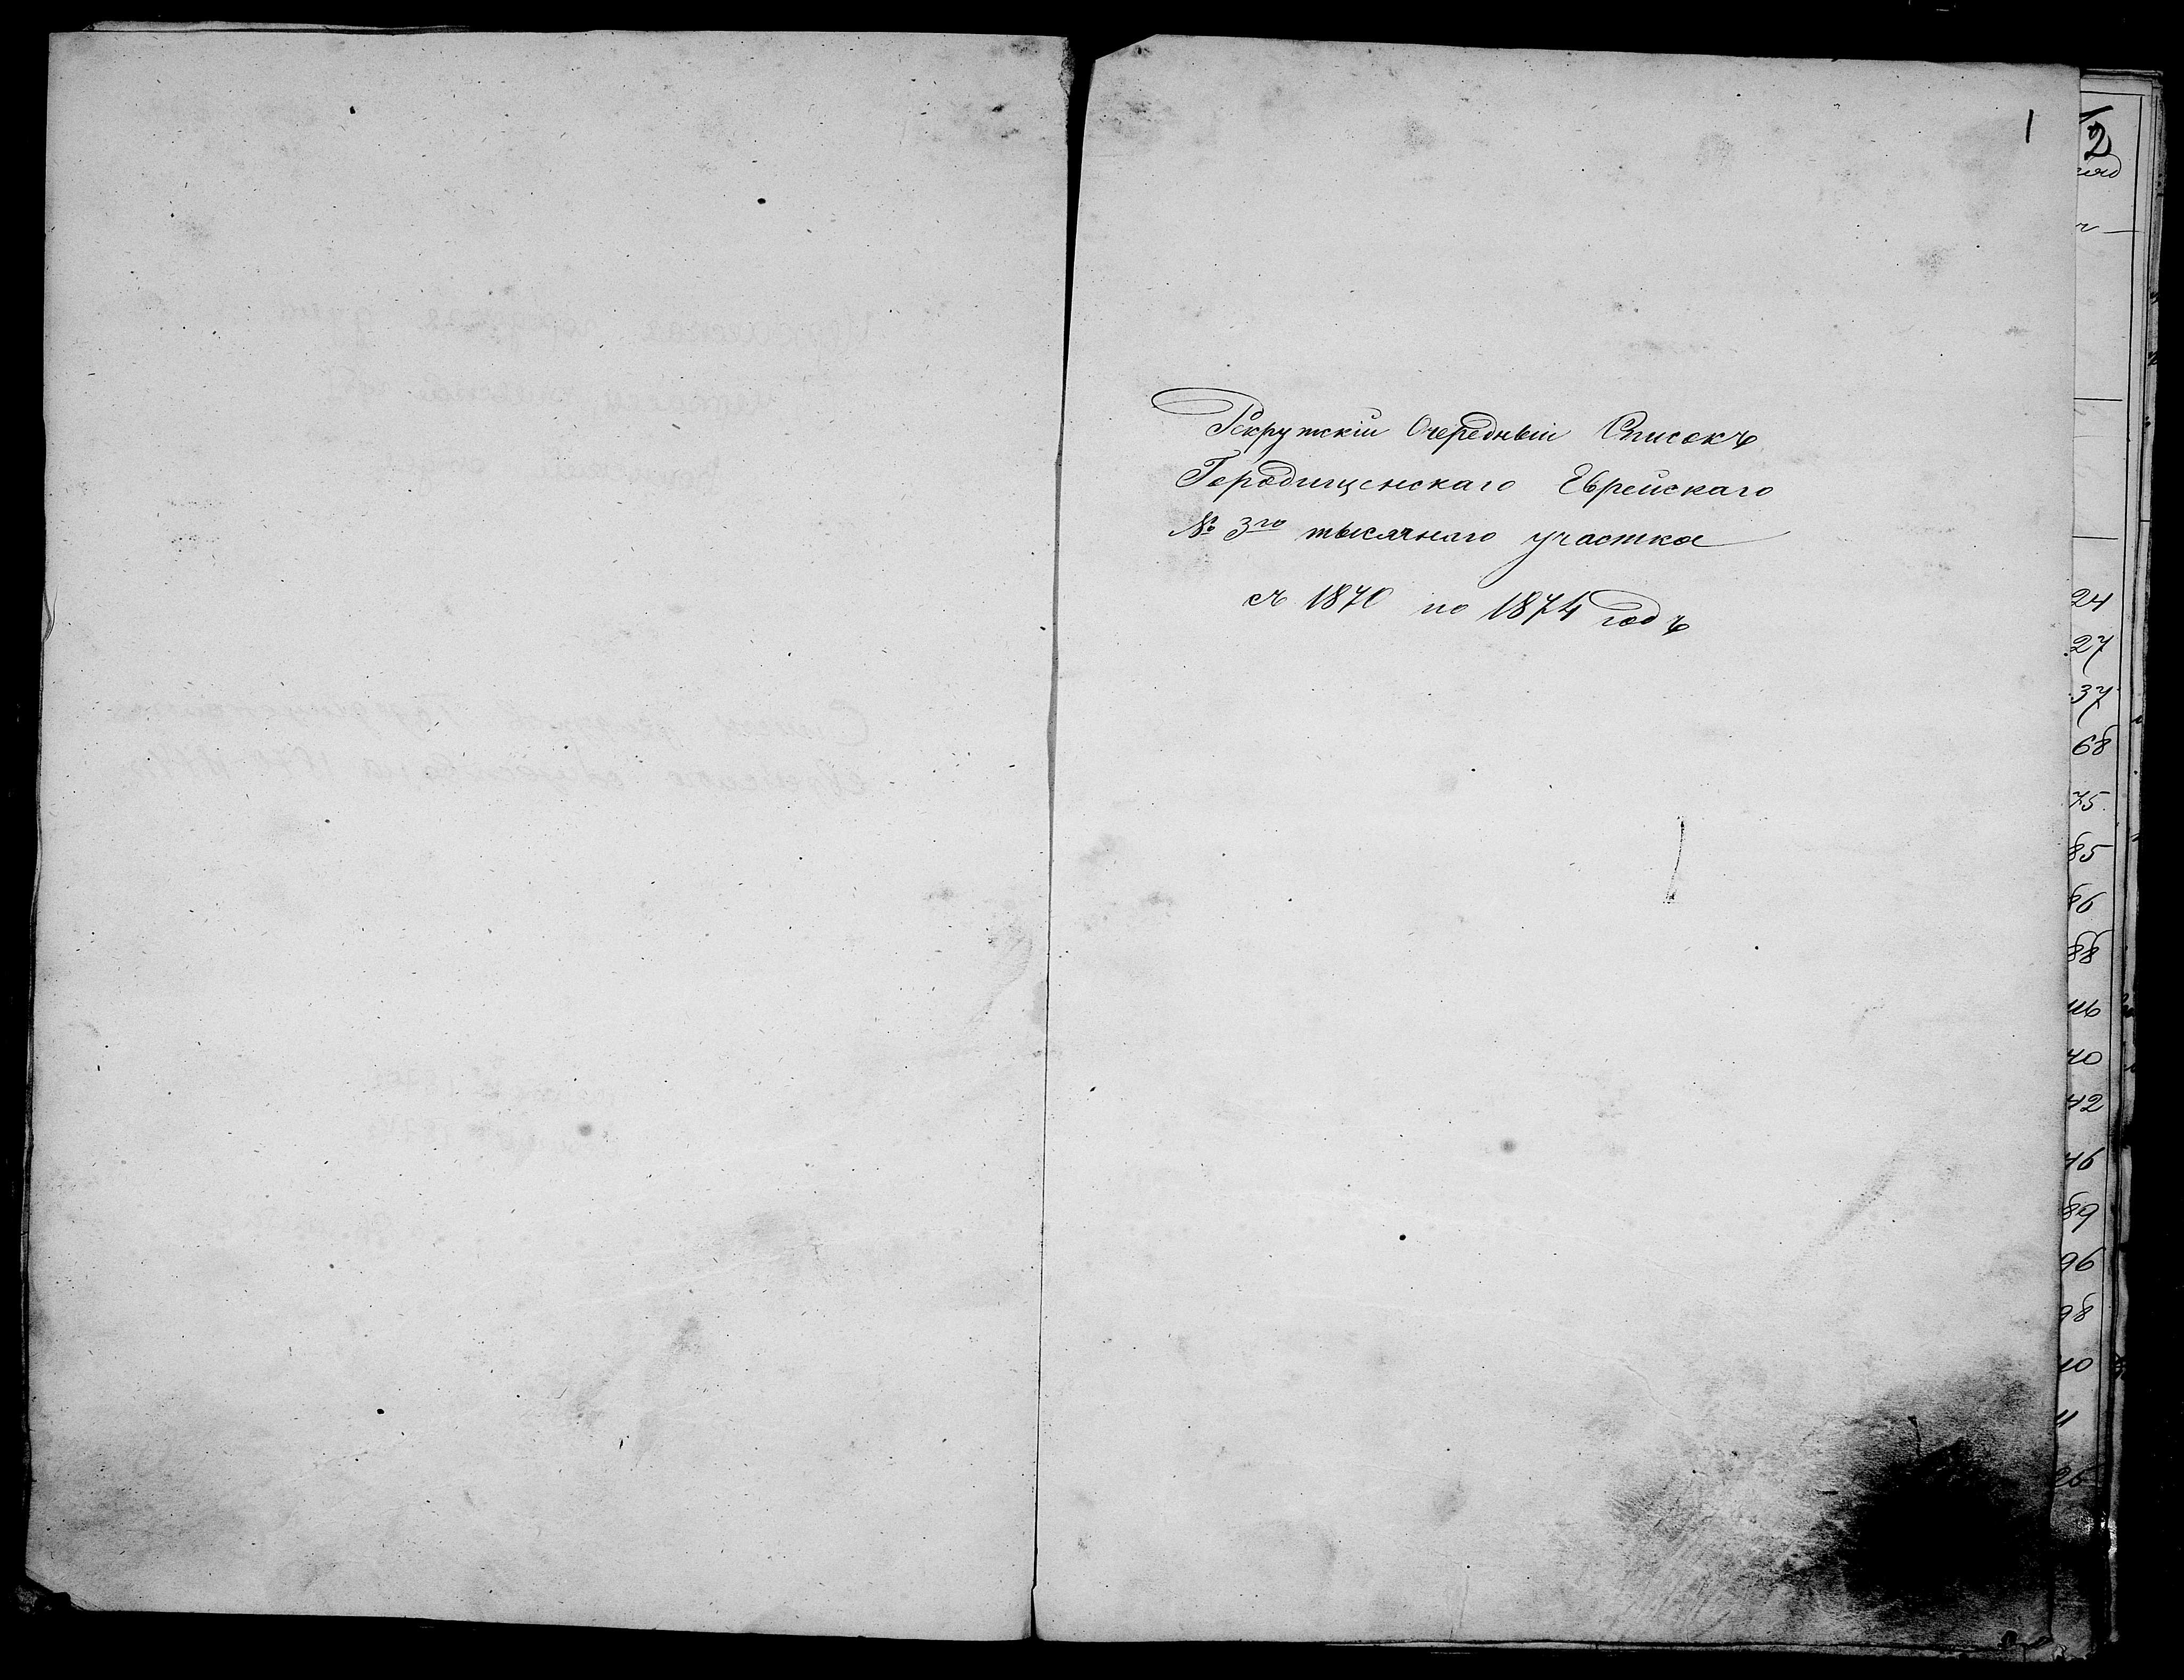 1
Рекрутскій Очередный Списокъ
Городищенскаго Еврейскаго
№ 3го тысячнаго участка
съ 1870 по 1874 годъ
2
24
27
37
68
75
85
86
88
116
40
42
46
89
96
98
10
11
26